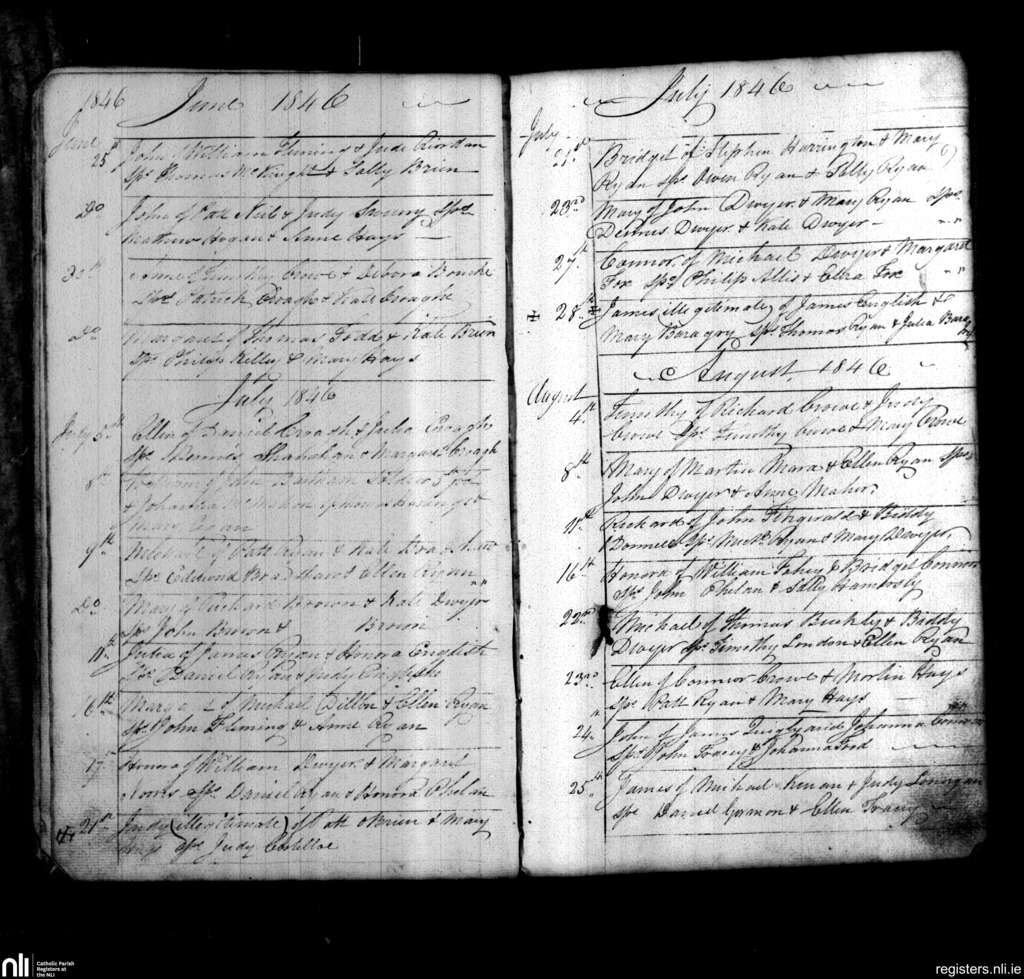 1846 June 1846
June 25th John William Fleming & Jude Riordan
Sps Thomas McKnight & Sally Brien
Do John of Patt Neil & Judy Sweeny Sps
Mathew Hogan & Anne Hays
Anne of Timothy Crowe & Debora Bourke
Sps Patrick & Kate
Do Margaret of Thomas Todd & Kate Brien
Sps Philip Kelly & Mary Hays
July 1846
July 5th Ellen of Daniel Croagh & Julia Croagh
Sps Thomas Shanahan & Margaret Croagh
8th of John
& Johanna
Mary Ryan
9th of Patt Ryan & Kate Bradshaw
Sps Edmond Bradshaw & Ellen Ryan
Do Mary of Richard Brown & Kate Dwyer
Sps John Brown & Brown
11th Julia of James Ryan & Honora English
Sps Daniel Ryan & Judy English
16th Margaret of Michael Dillon & Ellen Ryan
Sps John Fleming & Anne Ryan
17 Honora of William Dwyer & Margaret
Sps Daniel Ryan & Honora Phelan
21st Judy (illegitimate) of Patt O Brien & Mary
Hays Sps Judy Costelloe
July 1846
July 21st Bridget of Stephen Harrington & Mary
Ryan Sps Owen Ryan & Tilly Ryan
23rd Mary of John Dwyer & Mary Ryan Sps
Dennis Dwyer & Kate Dwyer
27th Connor of Michael Dwyer & Margaret
Fox Sps Philip Allis & Ellen Fox
28th James illegitimate of James English &
Mary Baragry Sps Thomas Ryan & Julia Baragry
August 1846
August 4th Timothy of Richard Crowe & Judy
Crowe Sps Timothy Crowe & Mary Crowe
8th Mary of Martin Mara & Ellen Ryan Sps
John Dwyer & Anne Maher
11th Richard of John Fitzgerald & Biddy
Bonnell Sps Michl Ryan & Mary Dwyer
16th Honora of William Fahey & Bridget Connors
Sps John Phelan & Sally Hamberly
22nd Michael of Thomas Buckley & Biddy
Dwyer Sps Timothy London & Ellen Ryan
23rd Ellen of Connor Crowe & Hays
Sps Patt Ryan & Mary Hays
24 John of James Quigly and Johanna Connors
Sps John Tracey & Johanna Ford
25th James of Michael Kenan & Judy Lonergan
Sps Daniel Gorman & Ellen Tracey
nli Catholic Parish
Registers at
the NLI
registers.nli.ie